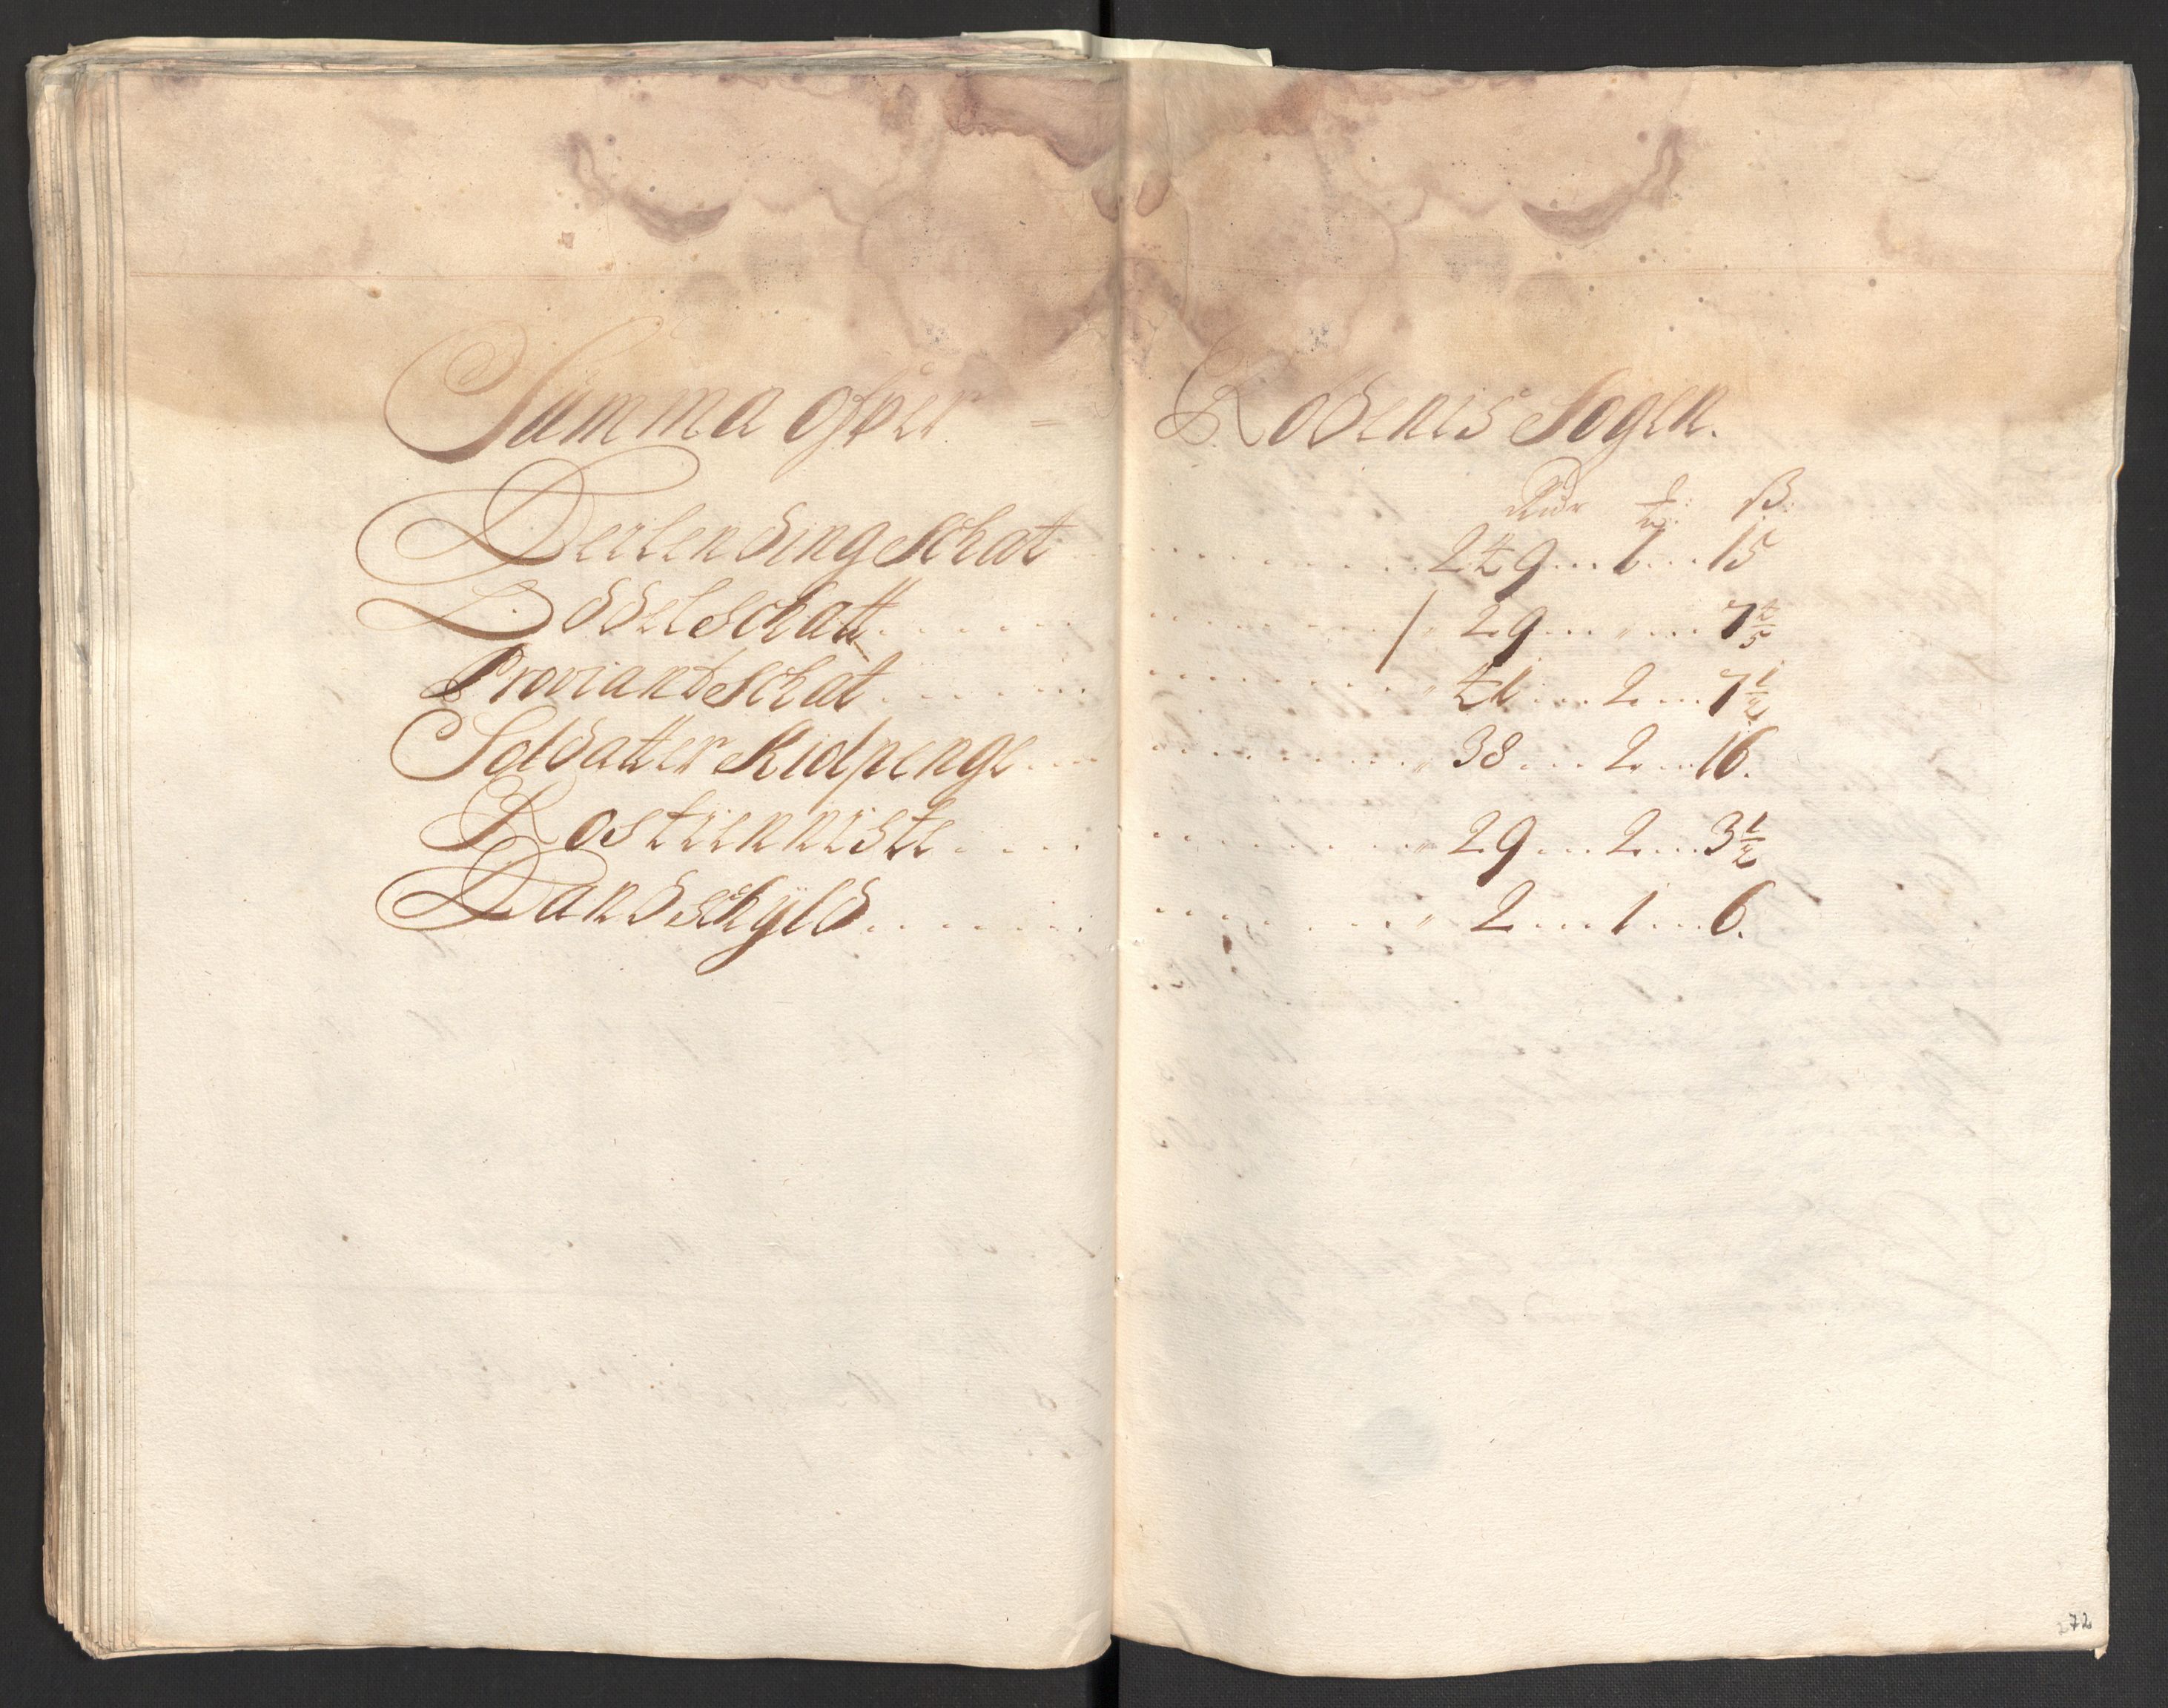 Summa ofver = Rodenes Sogen.
Rdr ƒ: ß:
Leilending Schat 249 1 15
Oddelschatt 29 " 7 4/5
Proviant Schat 41 2 7 1/2
Soldatter Skiolpenge 38 2 16.
Rostienneste 29 2 3 1/2
Landschyld 2 1 6.
272